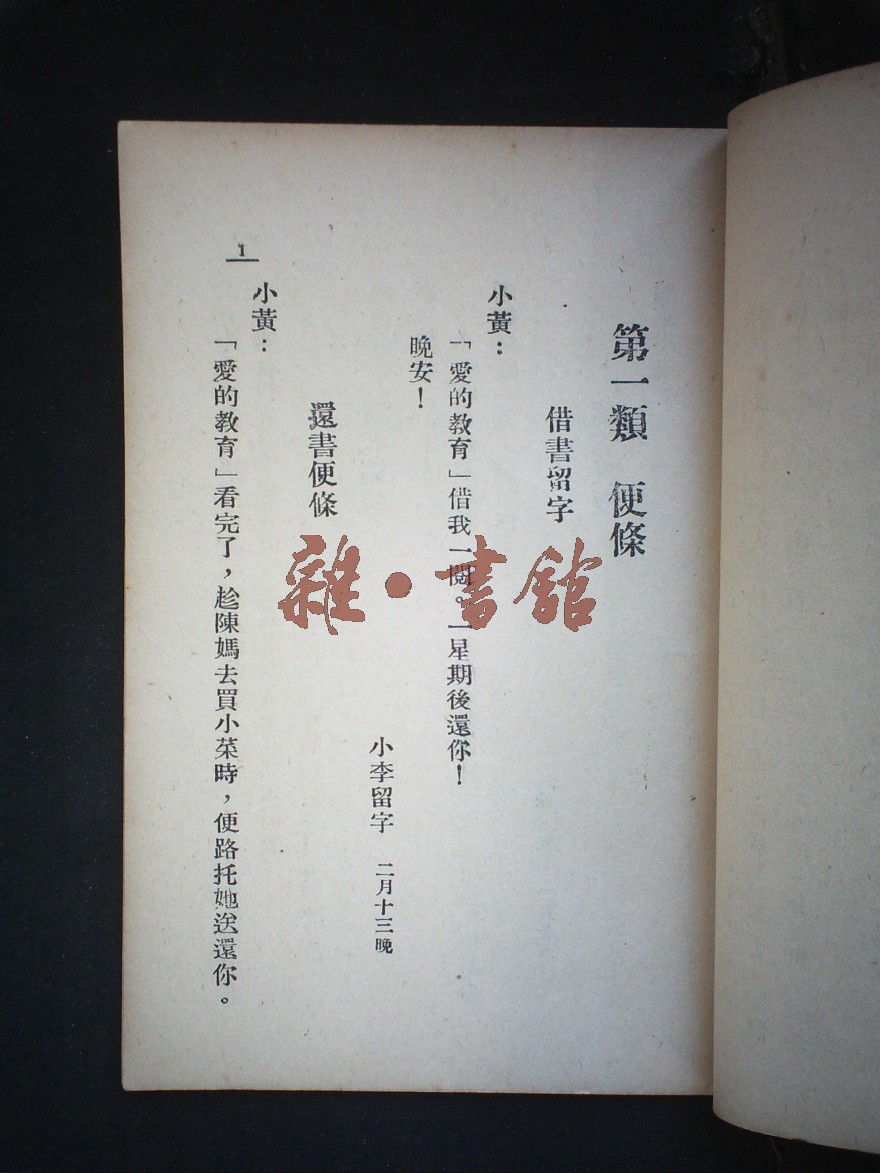 第一類　便條
借書留字
小黃：
「愛的教育」借我一閱。一星期後還你！
晚安！
小李留字　二月十三晚
還書便條
小黃：
「愛的教育」看完了，趁陳媽去買小菜時，便路托她送還你。
1
雜·書館